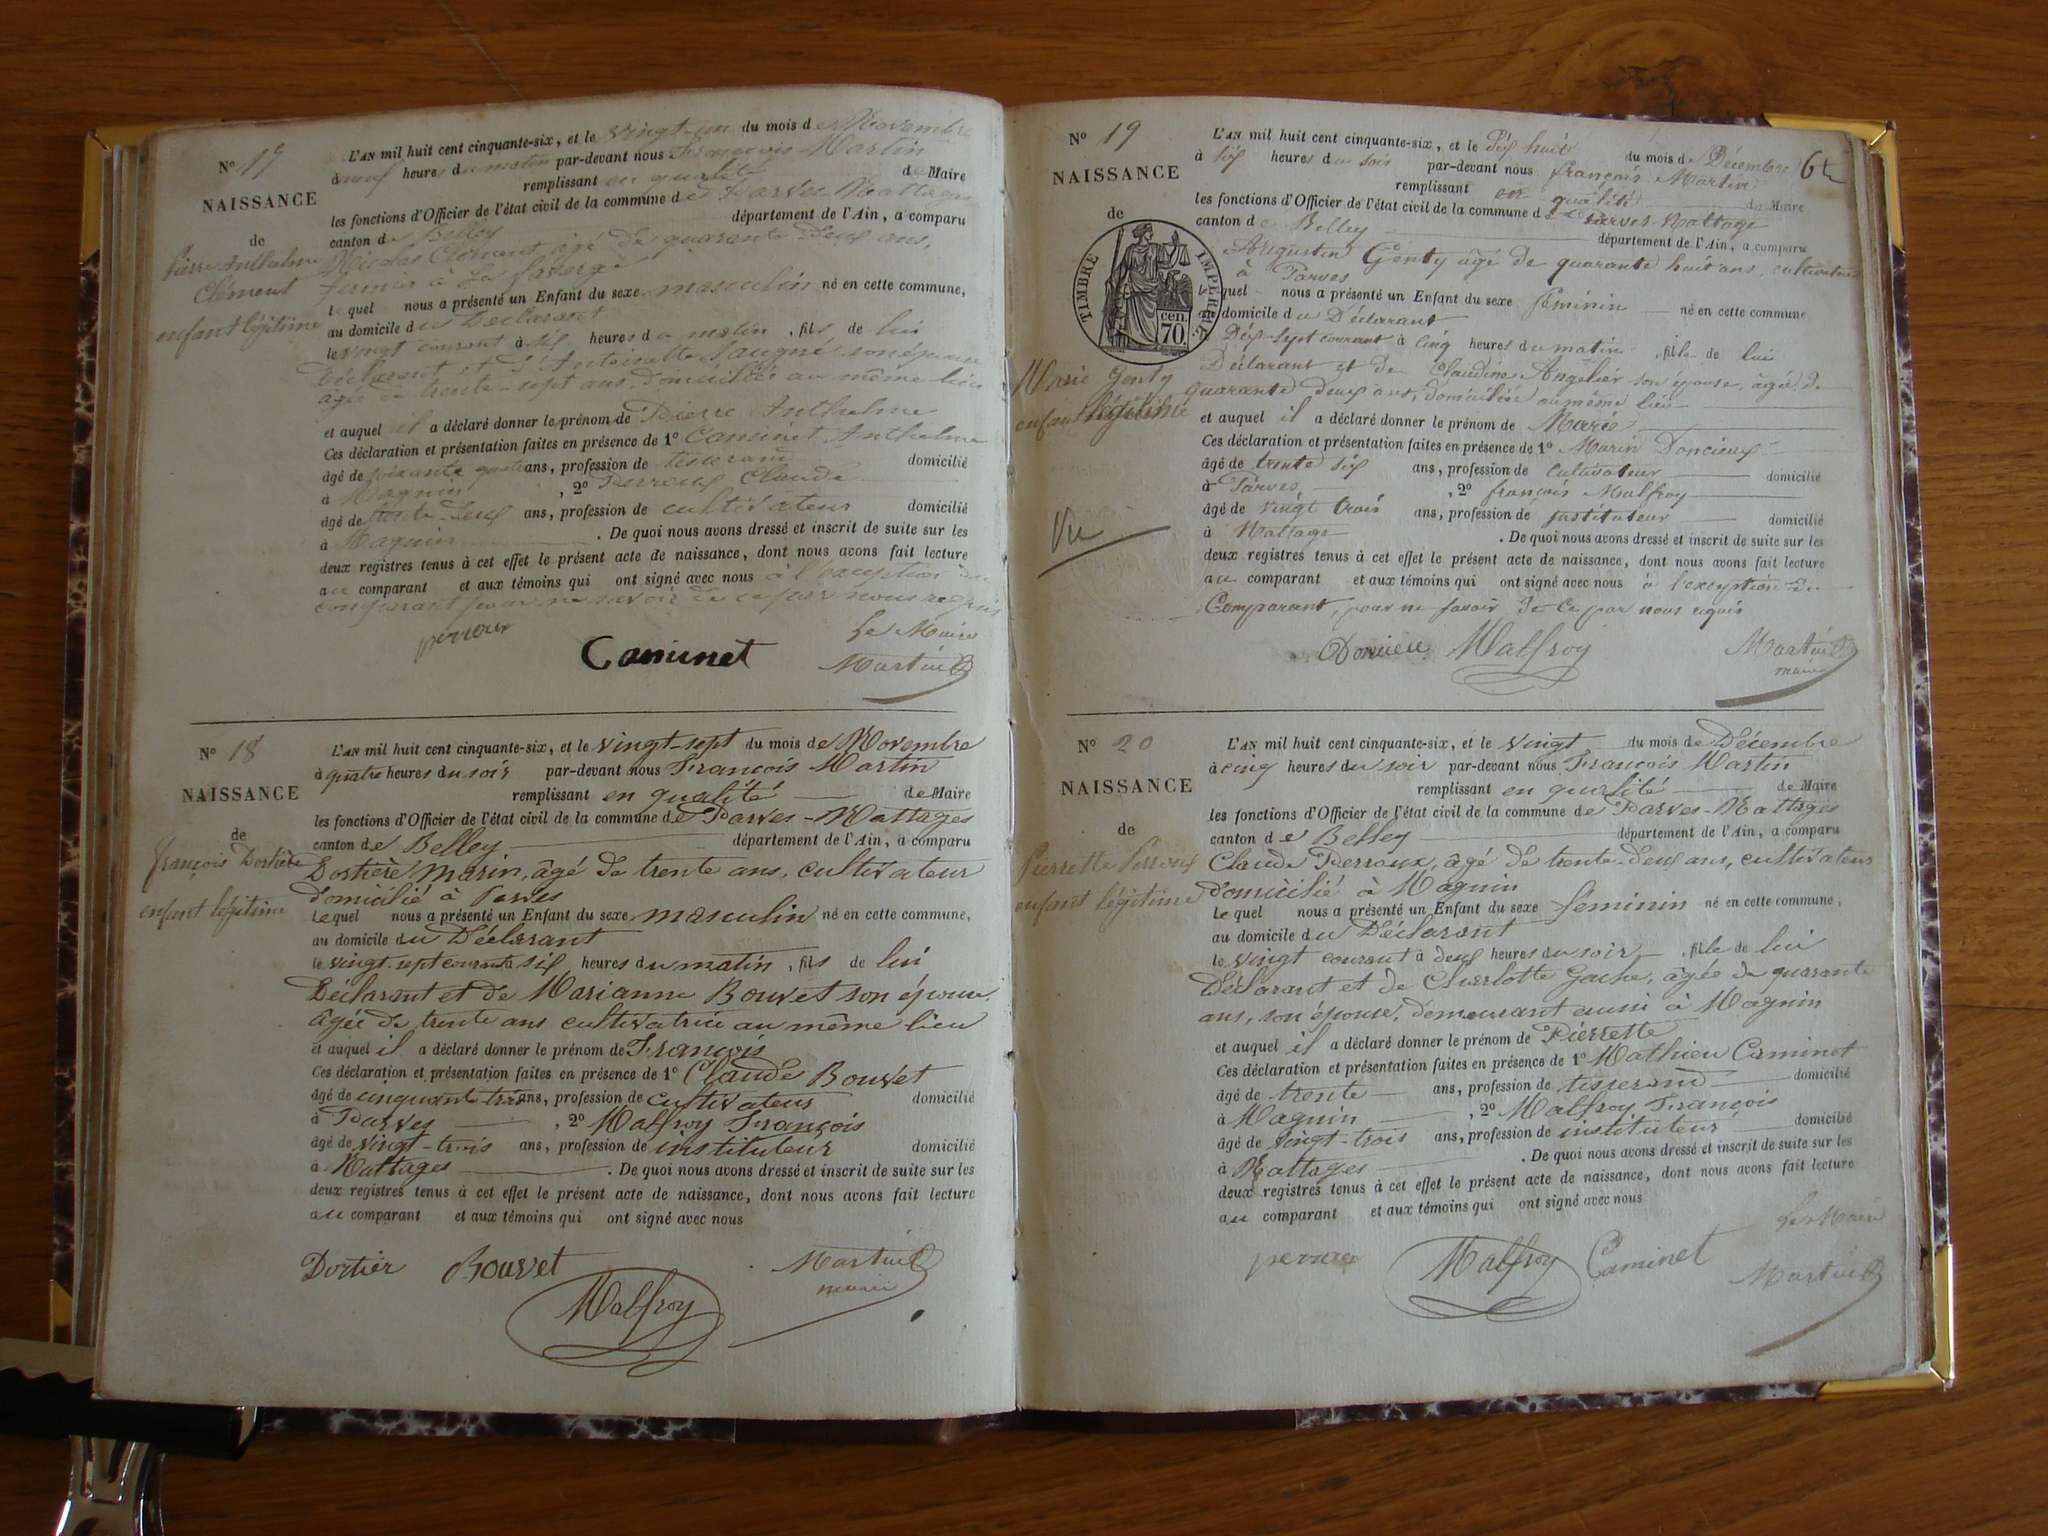 N° 17
NAISSANCE
de
Pierre Anthelme
Clément
enfant légitime
L'AN mil huit cent cinquante-six, et le vingt-un du mois de Novembre
à neuf heures du matin par-devant nous François Martin
remplissant en qualité de Maire
les fonctions d'Officier de l'état civil de la commune de Parves Nattages
canton de Belley département de l'Ain, a comparu
Nicolas Clément âgé de quarante-deux ans,
fermier à la
le quel nous a présenté un Enfant du sexe masculin né en cette commune,
au domicile du Déclarant
le vingt courant à six heures du matin, fils de lui
Déclarant et d'Antoinette son épouse
âgée de trente-sept ans, domiciliée au même lieu
et auquel il a déclaré donner le prénom de Pierre Anthelme
Ces déclaration et présentation faites en présence de 1° Caminet Anthelme
âgé de soixante quatre ans, profession de tisserand domicilié
à Magnin, 2° Perroux Claude
âgé de trente-deux ans, profession de cultivateur domicilié
à Magnin. De quoi nous avons dressé et inscrit de suite sur les
deux registres tenus à cet effet le présent acte de naissance, dont nous avons fait lecture
au comparant et aux témoins qui ont signé avec nous à l'exception du
comparant pour ne savoir de ce par nous requis
perroux
Caminet
Le Maire
Martin
N° 18
NAISSANCE
de
françois Dortière
enfant légitime
L'AN mil huit cent cinquante-six, et le vingt-sept du mois de Novembre
à quatre heures du soir par-devant nous François Martin
remplissant en qualité de Maire
les fonctions d'Officier de l'état civil de la commune de Parves-Nattages
canton de Belley département de l'Ain, a comparu
Dortière Marin, âgé de trente ans, cultivateur
domicilié à Parves
Le quel nous a présenté un Enfant du sexe masculin né en cette commune,
au domicile du Déclarant
le vingt-sept courant à six heures du matin, fils de lui
Déclarant et de Marianne Bouvet son épouse,
âgée de trente ans cultivatrice au même lieu
et auquel il a déclaré donner le prénom de François
Ces déclaration et présentation faites en présence de 1° Claude Bouvet
âgé de cinquante trois ans, profession de cultivateur domicilié
à Parves, 2° Malfroy François
âgé de vingt-trois ans, profession de instituteur domicilié
à Nattages. De quoi nous avons dressé et inscrit de suite sur les
deux registres tenus à cet effet le présent acte de naissance, dont nous avons fait lecture
au comparant et aux témoins qui ont signé avec nous
Dortier Bouvet
Malfroy
Martin
maire
N° 19
NAISSANCE
de
TIMBRE IMPERIAL
70 cen.
Marie Genty
enfant légitime
Vu
L'AN mil huit cent cinquante-six, et le dix huit du mois de Décembre
à six heures du soir par-devant nous françois Martin
remplissant en qualité de Maire
les fonctions d'Officier de l'état civil de la commune de Parves-Nattage
canton de Belley département de l'Ain, a comparu
Augustin Genty âgé de quarante huit ans, cultivateur
à Parves
le quel nous a présenté un Enfant du sexe féminin né en cette commune
au domicile du Déclarant
le Dix-sept courant à cinq heures du matin, fille de lui
Déclarant et de Claudine Angelier son épouse, âgée de
quarante deux ans, domiciliée au même lieu
et auquel il a déclaré donner le prénom de Marie
Ces déclaration et présentation faites en présence de 1° Marin Doncieux
âgé de trente six ans, profession de cultivateur domicilié
à Parves, 2° françois Malfroy
âgé de vingt trois ans, profession de instituteur domicilié
à Nattage. De quoi nous avons dressé et inscrit de suite sur les
deux registres tenus à cet effet le présent acte de naissance, dont nous avons fait lecture
au comparant et aux témoins qui ont signé avec nous à l'exception du
Comparant, pour ne savoir de ce par nous requis
Doncieu Malfroy
Martin
maire
N° 20
NAISSANCE
de
Pierrette Perroux
enfant légitime
L'AN mil huit cent cinquante-six, et le vingt du mois de Décembre
à cinq heures du soir par-devant nous François Martin
remplissant en qualité de Maire
les fonctions d'Officier de l'état civil de la commune de Parves-Nattages
canton de Belley département de l'Ain, a comparu
Claude Perroux, âgé de trente-deux ans, cultivateur
domicilié à Magnin
Le quel nous a présenté un Enfant du sexe féminin né en cette commune,
au domicile du Déclarant
le vingt courant à deux heures du soir, fille de lui
Déclarant et de Charlotte Gache, âgée de quarante
ans, son épouse, demeurant aussi à Magnin
et auquel il a déclaré donner le prénom de Pierrette
Ces déclaration et présentation faites en présence de 1° Mathieu Caminet
âgé de trente ans, profession de tisserand domicilié
à Magnin, 2° Malfroy François
âgé de vingt-trois ans, profession de instituteur domicilié
à Nattages. De quoi nous avons dressé et inscrit de suite sur les
deux registres tenus à cet effet le présent acte de naissance, dont nous avons fait lecture
au comparant et aux témoins qui ont signé avec nous
Le Maire
perroux Malfroy Caminet
Martin